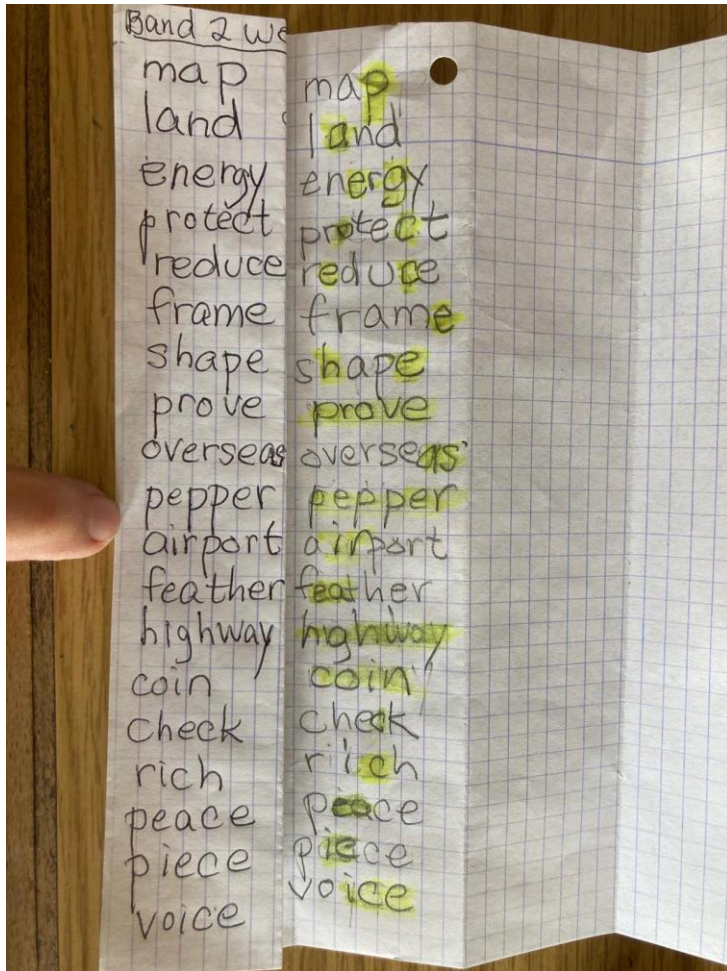 Band 2 We
map
land
energy
protect
reduce
frame
shape
prove
overseas
pepper
airport
feather
highway
coin
check
rich
peace
piece
voice
map
land
energy
protect
reduce
frame
shape
prove
overseas
pepper
airport
feather
hghway
coin
check
rich
peace
piece
voice